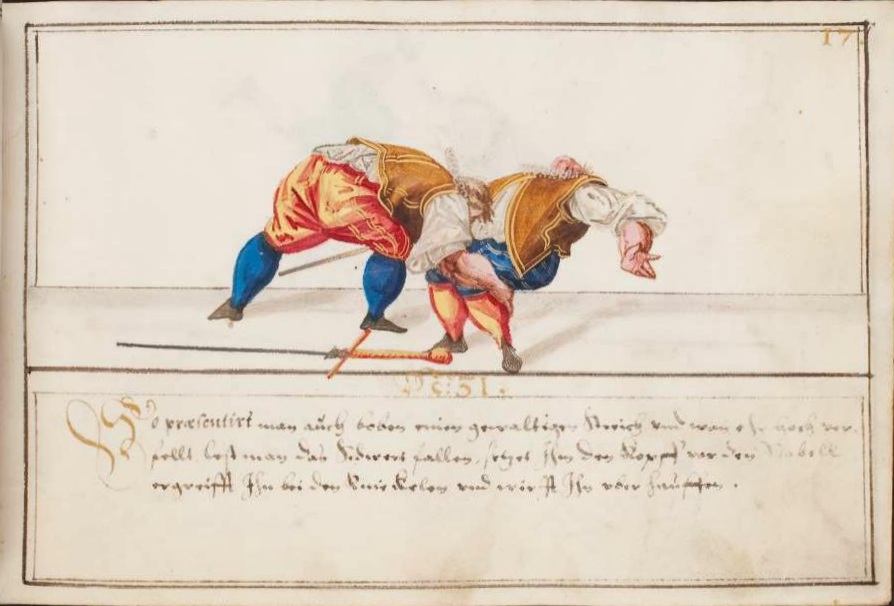 17
N̊: 51.
So præsentirt man auch boben einen gewaltigen streich vnd wan ehr hoch ver-
fellt lest man das Schwert fallen, setzet Ihm den Kopff vor den Nabell
ergreifft Ihn bei den Knie Kelen vnd wirfft Ihn vber hauffen.